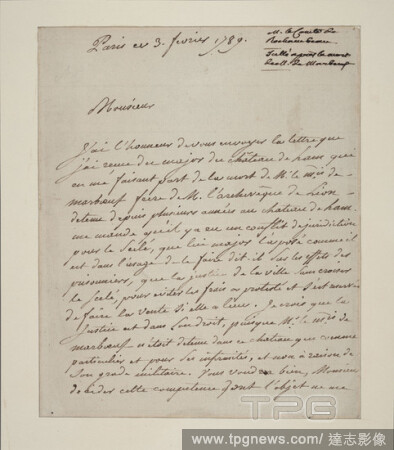 Paris ce 3. fevrier 1789.
M. le Comte de
Rochambeau
Monsieur
J'ai l'honneur de vous envoyer la lettre que
j'ai recue du major du château de ham qui
en me faisant part de la mort de M. le mis de
marbœuf frere de M. l'archevêque de Lion
detenu depuis plusieurs années au chateau de ham
me mande qu'il y a eu un conflit de juridiction
pour le scelé, que lui major l'a posé comme il
est dans l'usage de le faire dit il sur les effets des
prisonniers, que la justice de la ville sans croiser
le scelé pour eviter les frais a protesté et s'est
de faire la vente si elle a lieu. Je crois que la
Justice est dans son droit, puisque M. le mis de
marbœuf n'étoit detenu dans ce chateau que comme
particulier et pour ses infirmités, et non à raison de
son grade militaire. Vous voudrez bien, Monsieur
decider cette competence dont l'objet ne me
TPG
www.tpgnews.com/達志影像